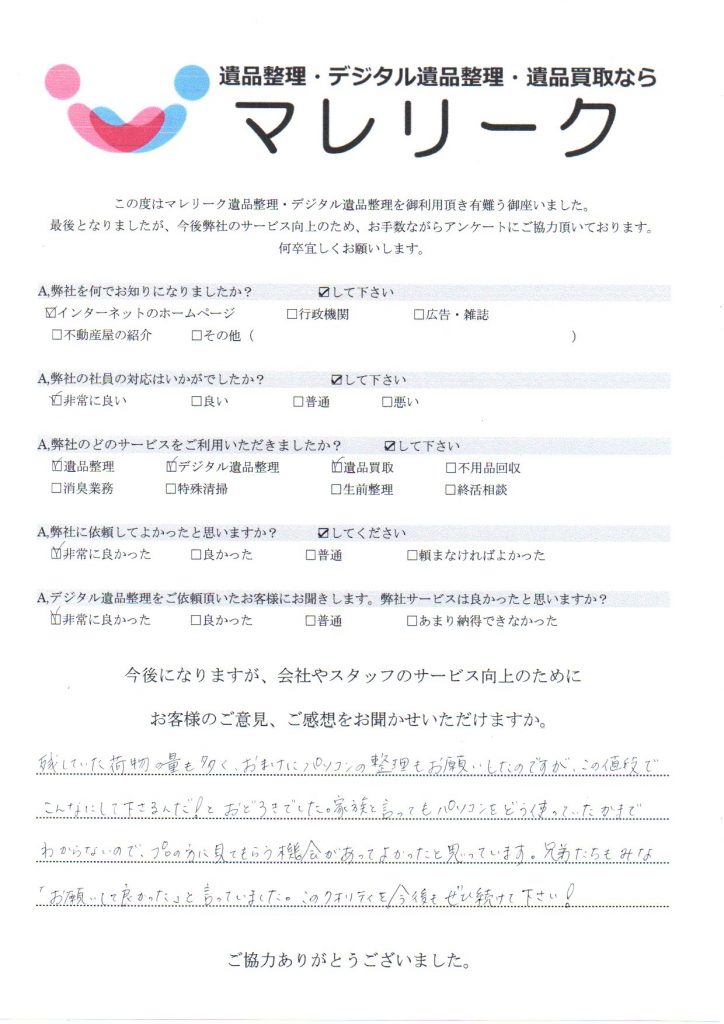 遺品整理・デジタル遺品整理・遺品買取なら
マレリーク
この度はマレリーク遺品整理・デジタル遺品整理を御利用頂き有難う御座いました。
最後となりましたが、今後弊社のサービス向上のため、お手数ながらアンケートにご協力頂いております。
何卒宜しくお願いします。
A,弊社を何でお知りになりましたか？ ☑して下さい
☑インターネットのホームページ □行政機関 □広告・雑誌
□不動産屋の紹介 □その他（ ）
A,弊社の社員の対応はいかがでしたか？ ☑して下さい
☑非常に良い □良い □普通 □悪い
A,弊社のどのサービスをご利用いただきましたか？ ☑して下さい
☑遺品整理 ☑デジタル遺品整理 ☑遺品買取 □不用品回収
□消臭業務 □特殊清掃 □生前整理 □終活相談
A,弊社に依頼してよかったと思いますか？ ☑してください
☑非常に良かった □良かった □普通 □頼まなければよかった
A,デジタル遺品整理をご依頼頂いたお客様にお聞きします。弊社サービスは良かったと思いますか？
☑非常に良かった □良かった □普通 □あまり納得できなかった
今後になりますが、会社やスタッフのサービス向上のために
お客様のご意見、ご感想をお聞かせいただけますか。
残していた荷物の量も多く、おまけにパソコンの整理もお願いしたのですが、この値段で
こんなにして下さるんだ！と おどろきでした。家族と言ってもパソコンをどう使っていたかまで
わからないので、プロの方に見てもらう機会があってよかったと思っています。兄弟たちもみな
「お願いして良かった」と言っていました。このクオリティを今後もぜひ続けて下さい！
ご協力ありがとうございました。